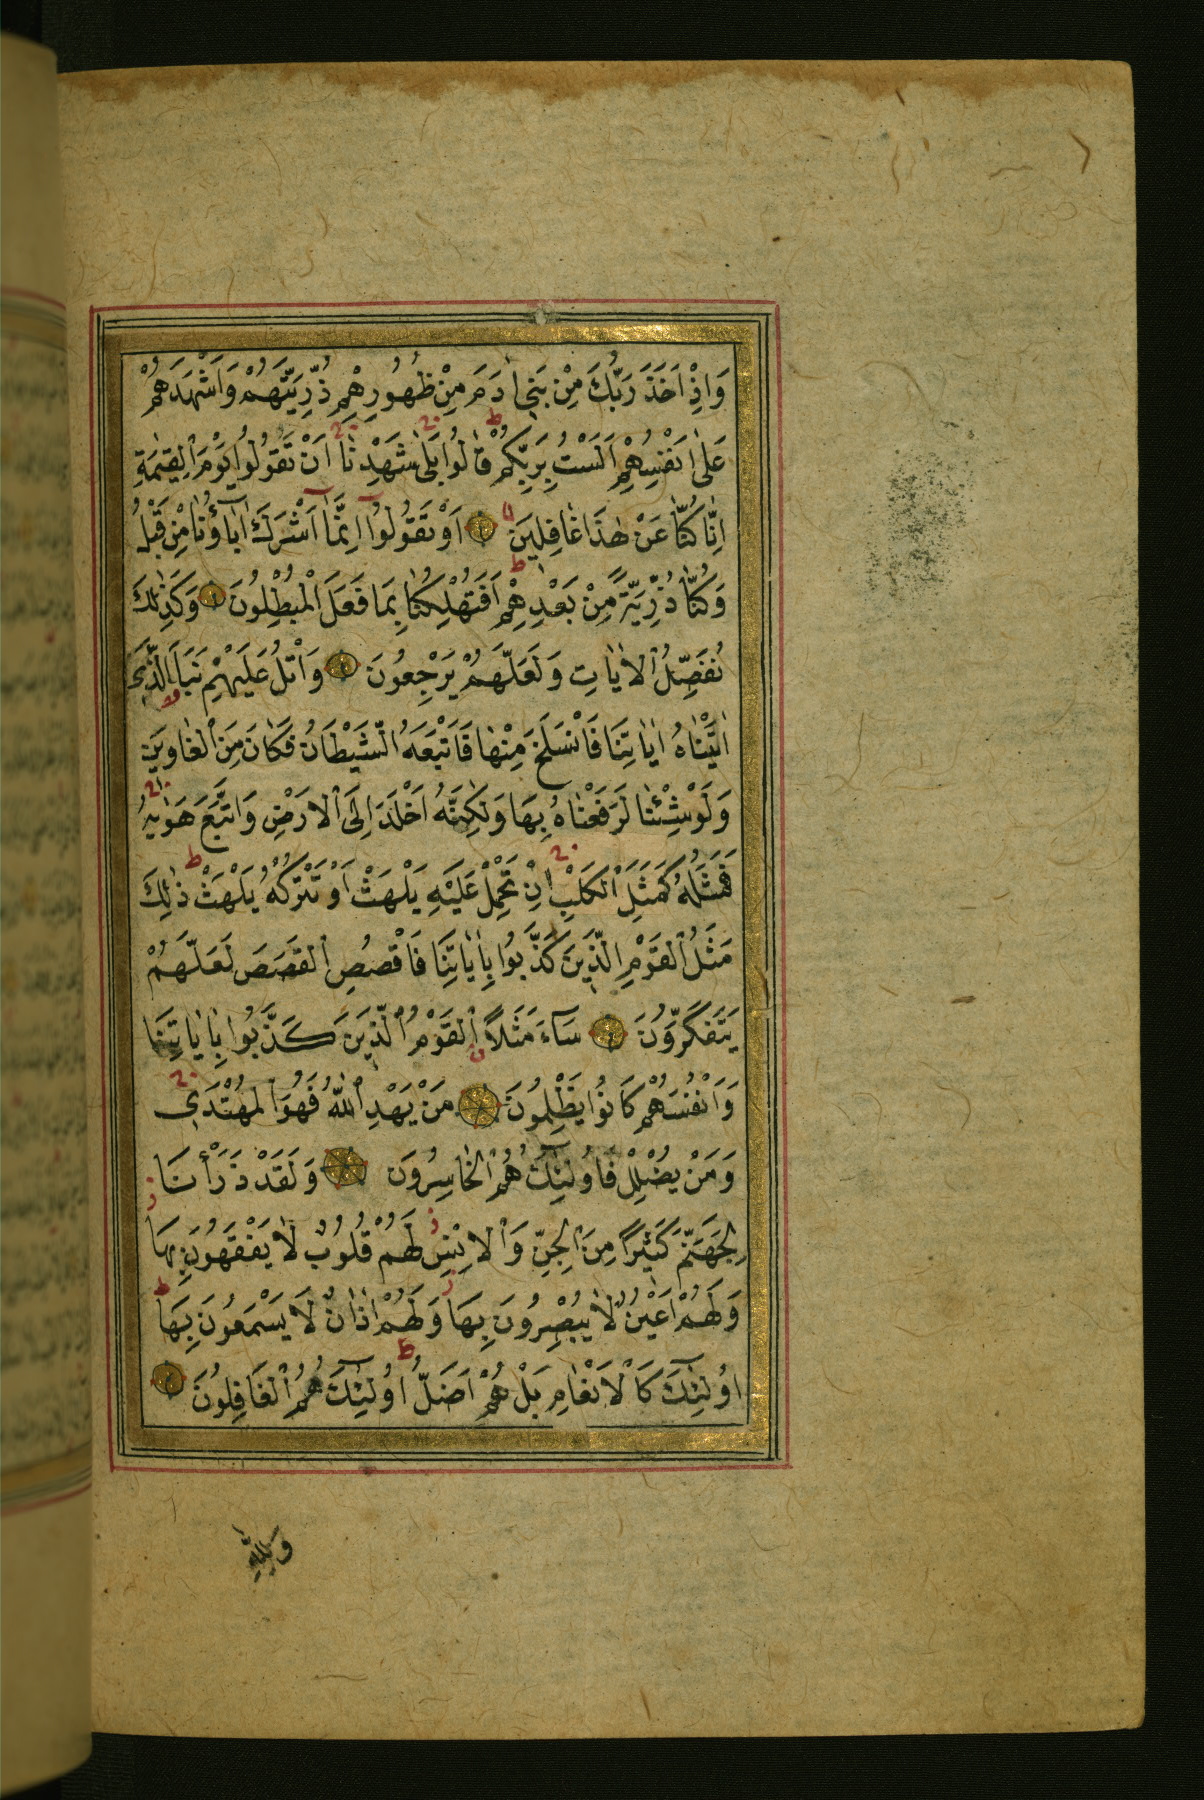 وَاِذْ اَخَذَ رَبُّكَ مِنْ بَنِىٓ اٰدَمَ مِنْ ظُهُورِهِمْ ذُرِّيَّتَهُمْ وَاَشْهَدَهُمْ
عَلٰٓى اَنْفُسِهِمْ اَلَسْتُ بِرَبِّكُمْ قَالُوا بَلٰى شَهِدْنَا اَنْ تَقُولُوا يَوْمَ الْقِيٰمَةِ
اِنَّا كُنَّا عَنْ هٰذَا غَافِلِينَ اَوْ تَقُولُوٓا اِنَّمَآ اَشْرَكَ اٰبَآؤُنَا مِنْ قَبْلُ
وَكُنَّا ذُرِّيَّةً مِنْ بَعْدِهِمْ اَفَتُهْلِكُنَا بِمَا فَعَلَ الْمُبْطِلُونَ وَكَذٰلِكَ
نُفَصِّلُ الْاٰيَاتِ وَلَعَلَّهُمْ يَرْجِعُونَ وَاتْلُ عَلَيْهِمْ نَبَاَ الَّذِىٓ
اٰتَيْنَاهُ اٰيَاتِنَا فَانْسَلَخَ مِنْهَا فَاَتْبَعَهُ الشَّيْطَانُ فَكَانَ مِنَ الْغَاوِينَ
وَلَوْ شِئْنَا لَرَفَعْنَاهُ بِهَا وَلٰكِنَّهُ اَخْلَدَ اِلَى الْاَرْضِ وَاتَّبَعَ هَوٰيهُ
فَمَثَلُهُ كَمَثَلِ الْكَلْبِ اِنْ تَحْمِلْ عَلَيْهِ يَلْهَثْ اَوْ تَتْرُكْهُ يَلْهَثْ ذٰلِكَ
مَثَلُ الْقَوْمِ الَّذِينَ كَذَّبُوا بِاٰيَاتِنَا فَاقْصُصِ الْقَصَصَ لَعَلَّهُمْ
يَتَفَكَّرُونَ سَآءَ مَثَلًا الْقَوْمُ الَّذِينَ كَذَّبُوا بِاٰيَاتِنَا
وَاَنْفُسَهُمْ كَانُوا يَظْلِمُونَ مَنْ يَهْدِ اللّٰهُ فَهُوَ الْمُهْتَدِى
وَمَنْ يُضْلِلْ فَاُولٰٓئِكَ هُمُ الْخَاسِرُونَ وَلَقَدْ ذَرَأْنَا
لِجَهَنَّمَ كَثِيرًا مِنَ الْجِنِّ وَالْاِنْسِ لَهُمْ قُلُوبٌ لَا يَفْقَهُونَ بِهَا
وَلَهُمْ اَعْيُنٌ لَا يُبْصِرُونَ بِهَا وَلَهُمْ اٰذَانٌ لَا يَسْمَعُونَ بِهَا
اُولٰٓئِكَ كَالْاَنْعَامِ بَلْ هُمْ اَضَلُّ اُولٰٓئِكَ هُمُ الْغَافِلُونَ
وَلِلّٰهِ